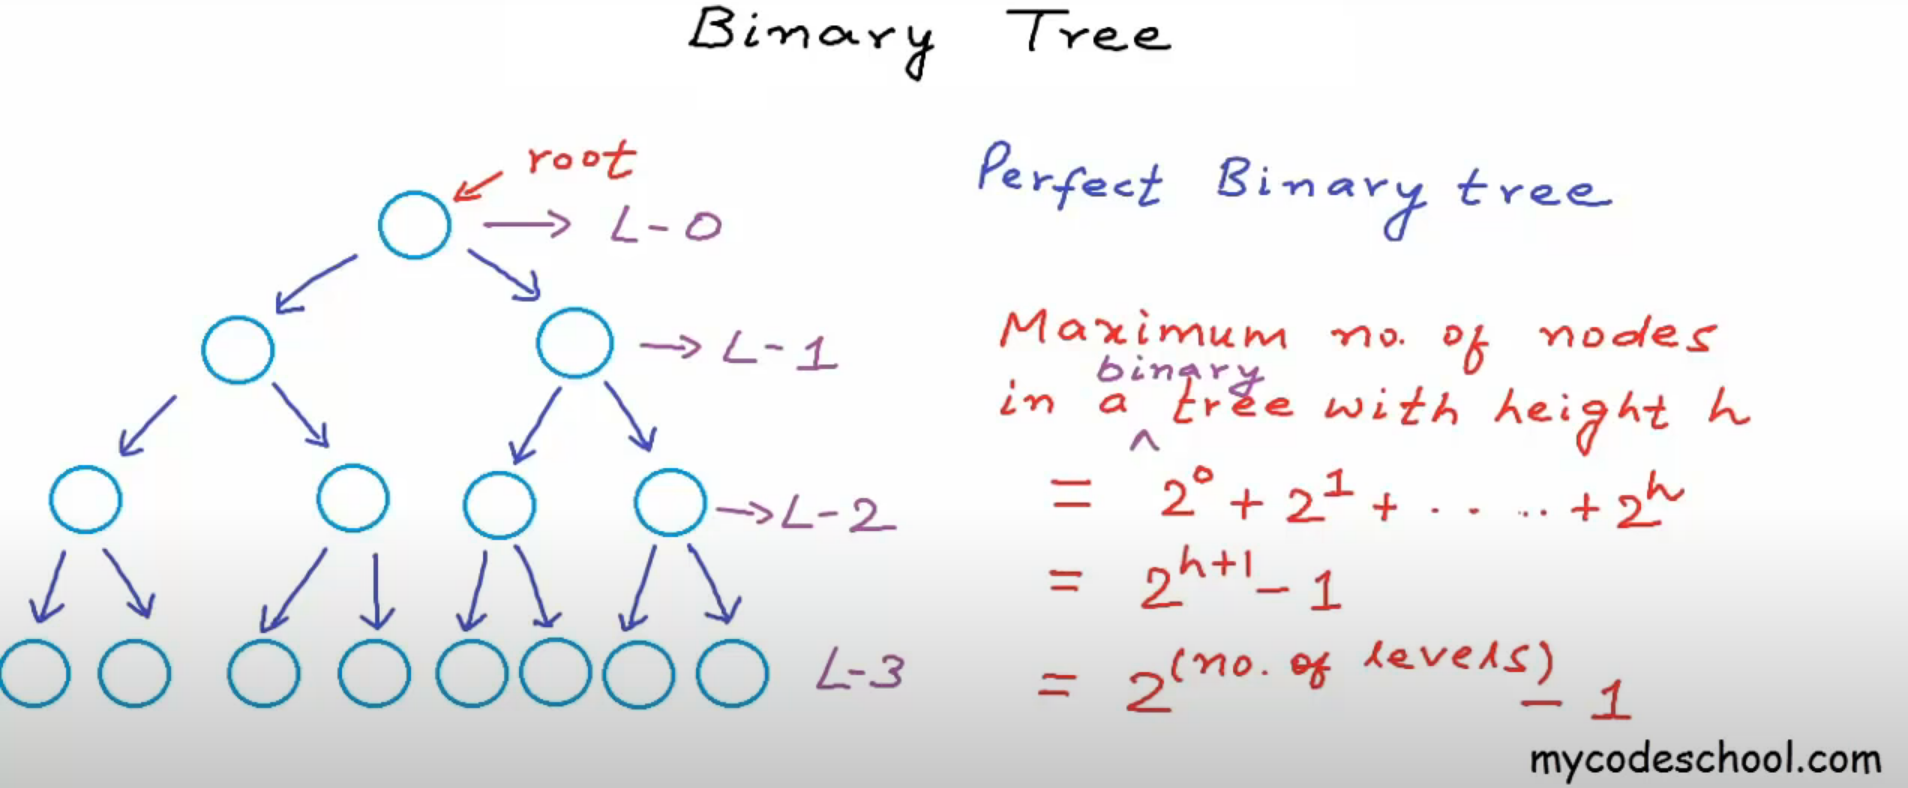 Binary Tree
root
L-0
L-1
L-2
L-3
Perfect Binary tree
Maximum no. of nodes
binary
in a ^ tree with height h
= 2⁰ + 2¹ + . . . . + 2ʰ
= 2ʰ⁺¹ - 1
= 2^(no. of levels) - 1
mycodeschool.com